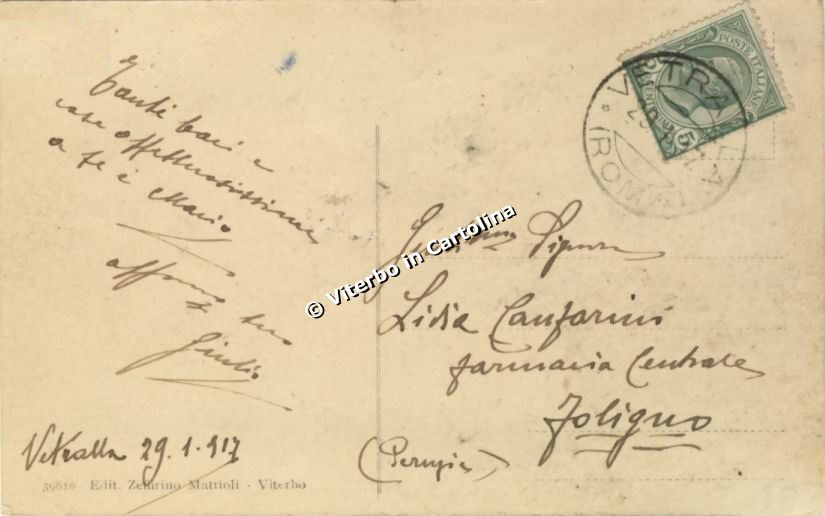 Tanti baci e
cose affettuosissime
a te e Mario
affmo tuo
Giulio
Vetralla 29.1.917
39816 Edit. Zeffirino Mattioli - Viterbo
© Viterbo in Cartolina
Signora
Lidia Canfarini
farmacia Centrale
Foligno
(Perugia)
POSTE ITALIANE
CENTESIMI 5
VETRALLA
(ROMA)